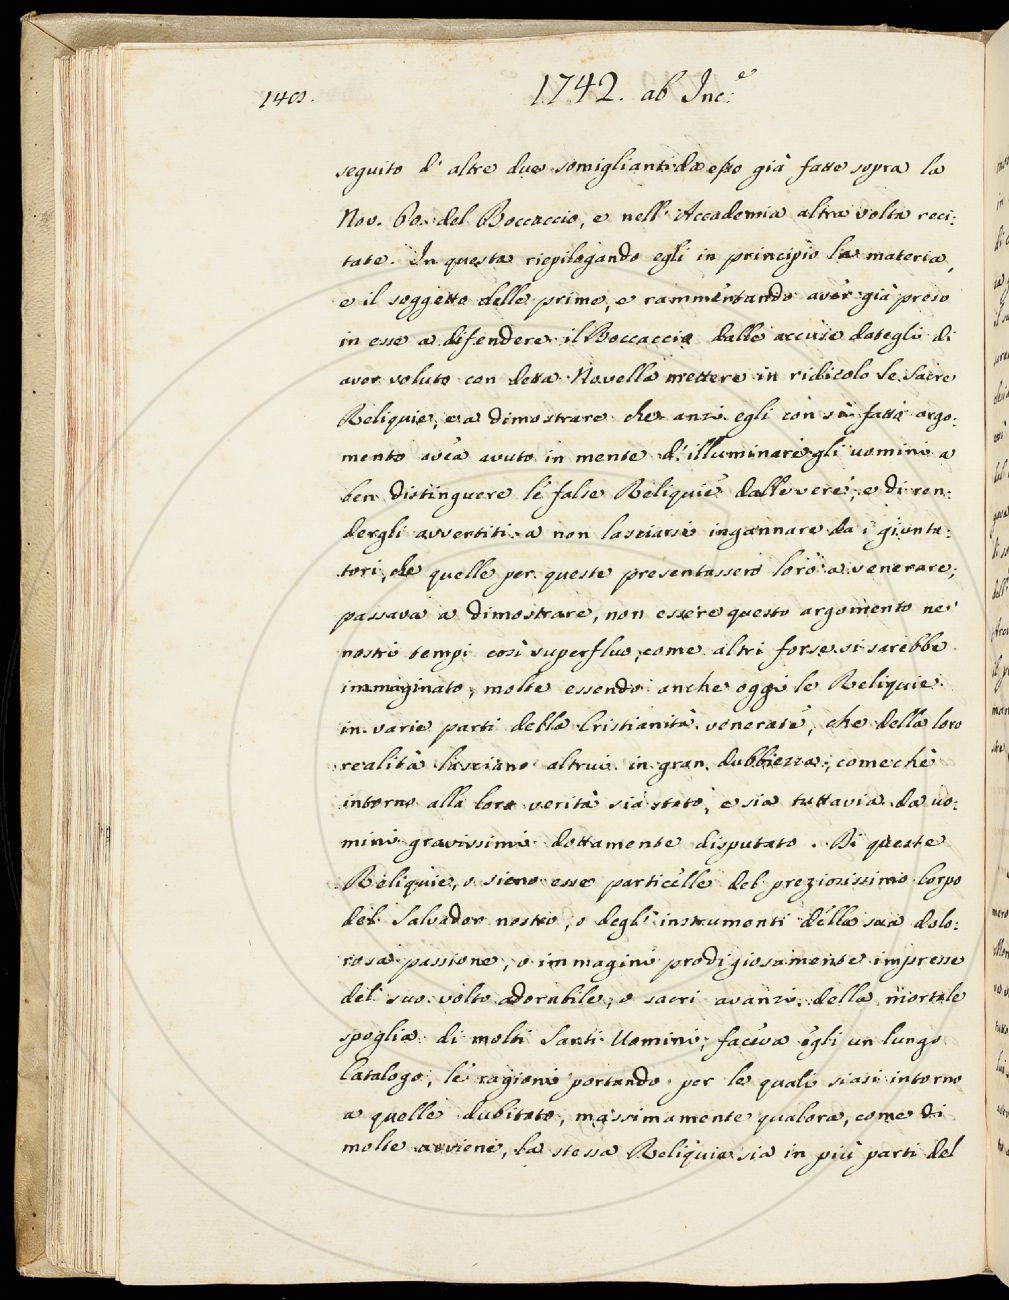 1742. ab Inc.e
seguito d'altre due somiglianti da esso già fatte sopra la
Nov. 60. del Boccaccio, e nell'Accademia altra volta reci:
tate. In questa riepilogando egli in principio la materia,
e il soggetto delle prime, e rammentando aver già preso
in esse a difendere il Boccaccio dalle accuse dategli di
aver voluto con detta Novella mettere in ridicolo le Sacre
Reliquie, e a dimostrare che anzi egli con sì fatto argo:
mento avea avuto in mente d'illuminare gli uomini a
ben distinguere le false Reliquie dalle vere, e di ren:
dergli avvertiti a non lasciarsi ingannare da i giunta:
tori, che quelle per queste presentassero loro a venerare;
passava a dimostrare, non essere questo argomento ne'
nostri tempi così superfluo, come altri forse si sarebbe
immaginato, molte essendo anche oggi le Reliquie
in varie parti della Cristianità venerate, che della loro
realità lasciano altrui in gran dubbiezza, comechè
intorno alla loro verità sia stato, e sia tuttavia da uo:
mini gravissimi dottamente disputato. Di queste
Reliquie, o sieno esse particelle del preziosissimo Corpo
del Salvador nostro, o degl'instrumenti della sua dolo:
rosa passione, o immagini prodigiosamente impresse
del suo volto adorabile, o sacri avanzi della mortale
spoglia di molti Santi Uomini, faceva egli un lungo
Catalogo, le ragioni portando per le quali siasi intorno
a quelle dubitato, massimamente qualora, come di
molte avviene, la stessa Reliquia sia in più parti del